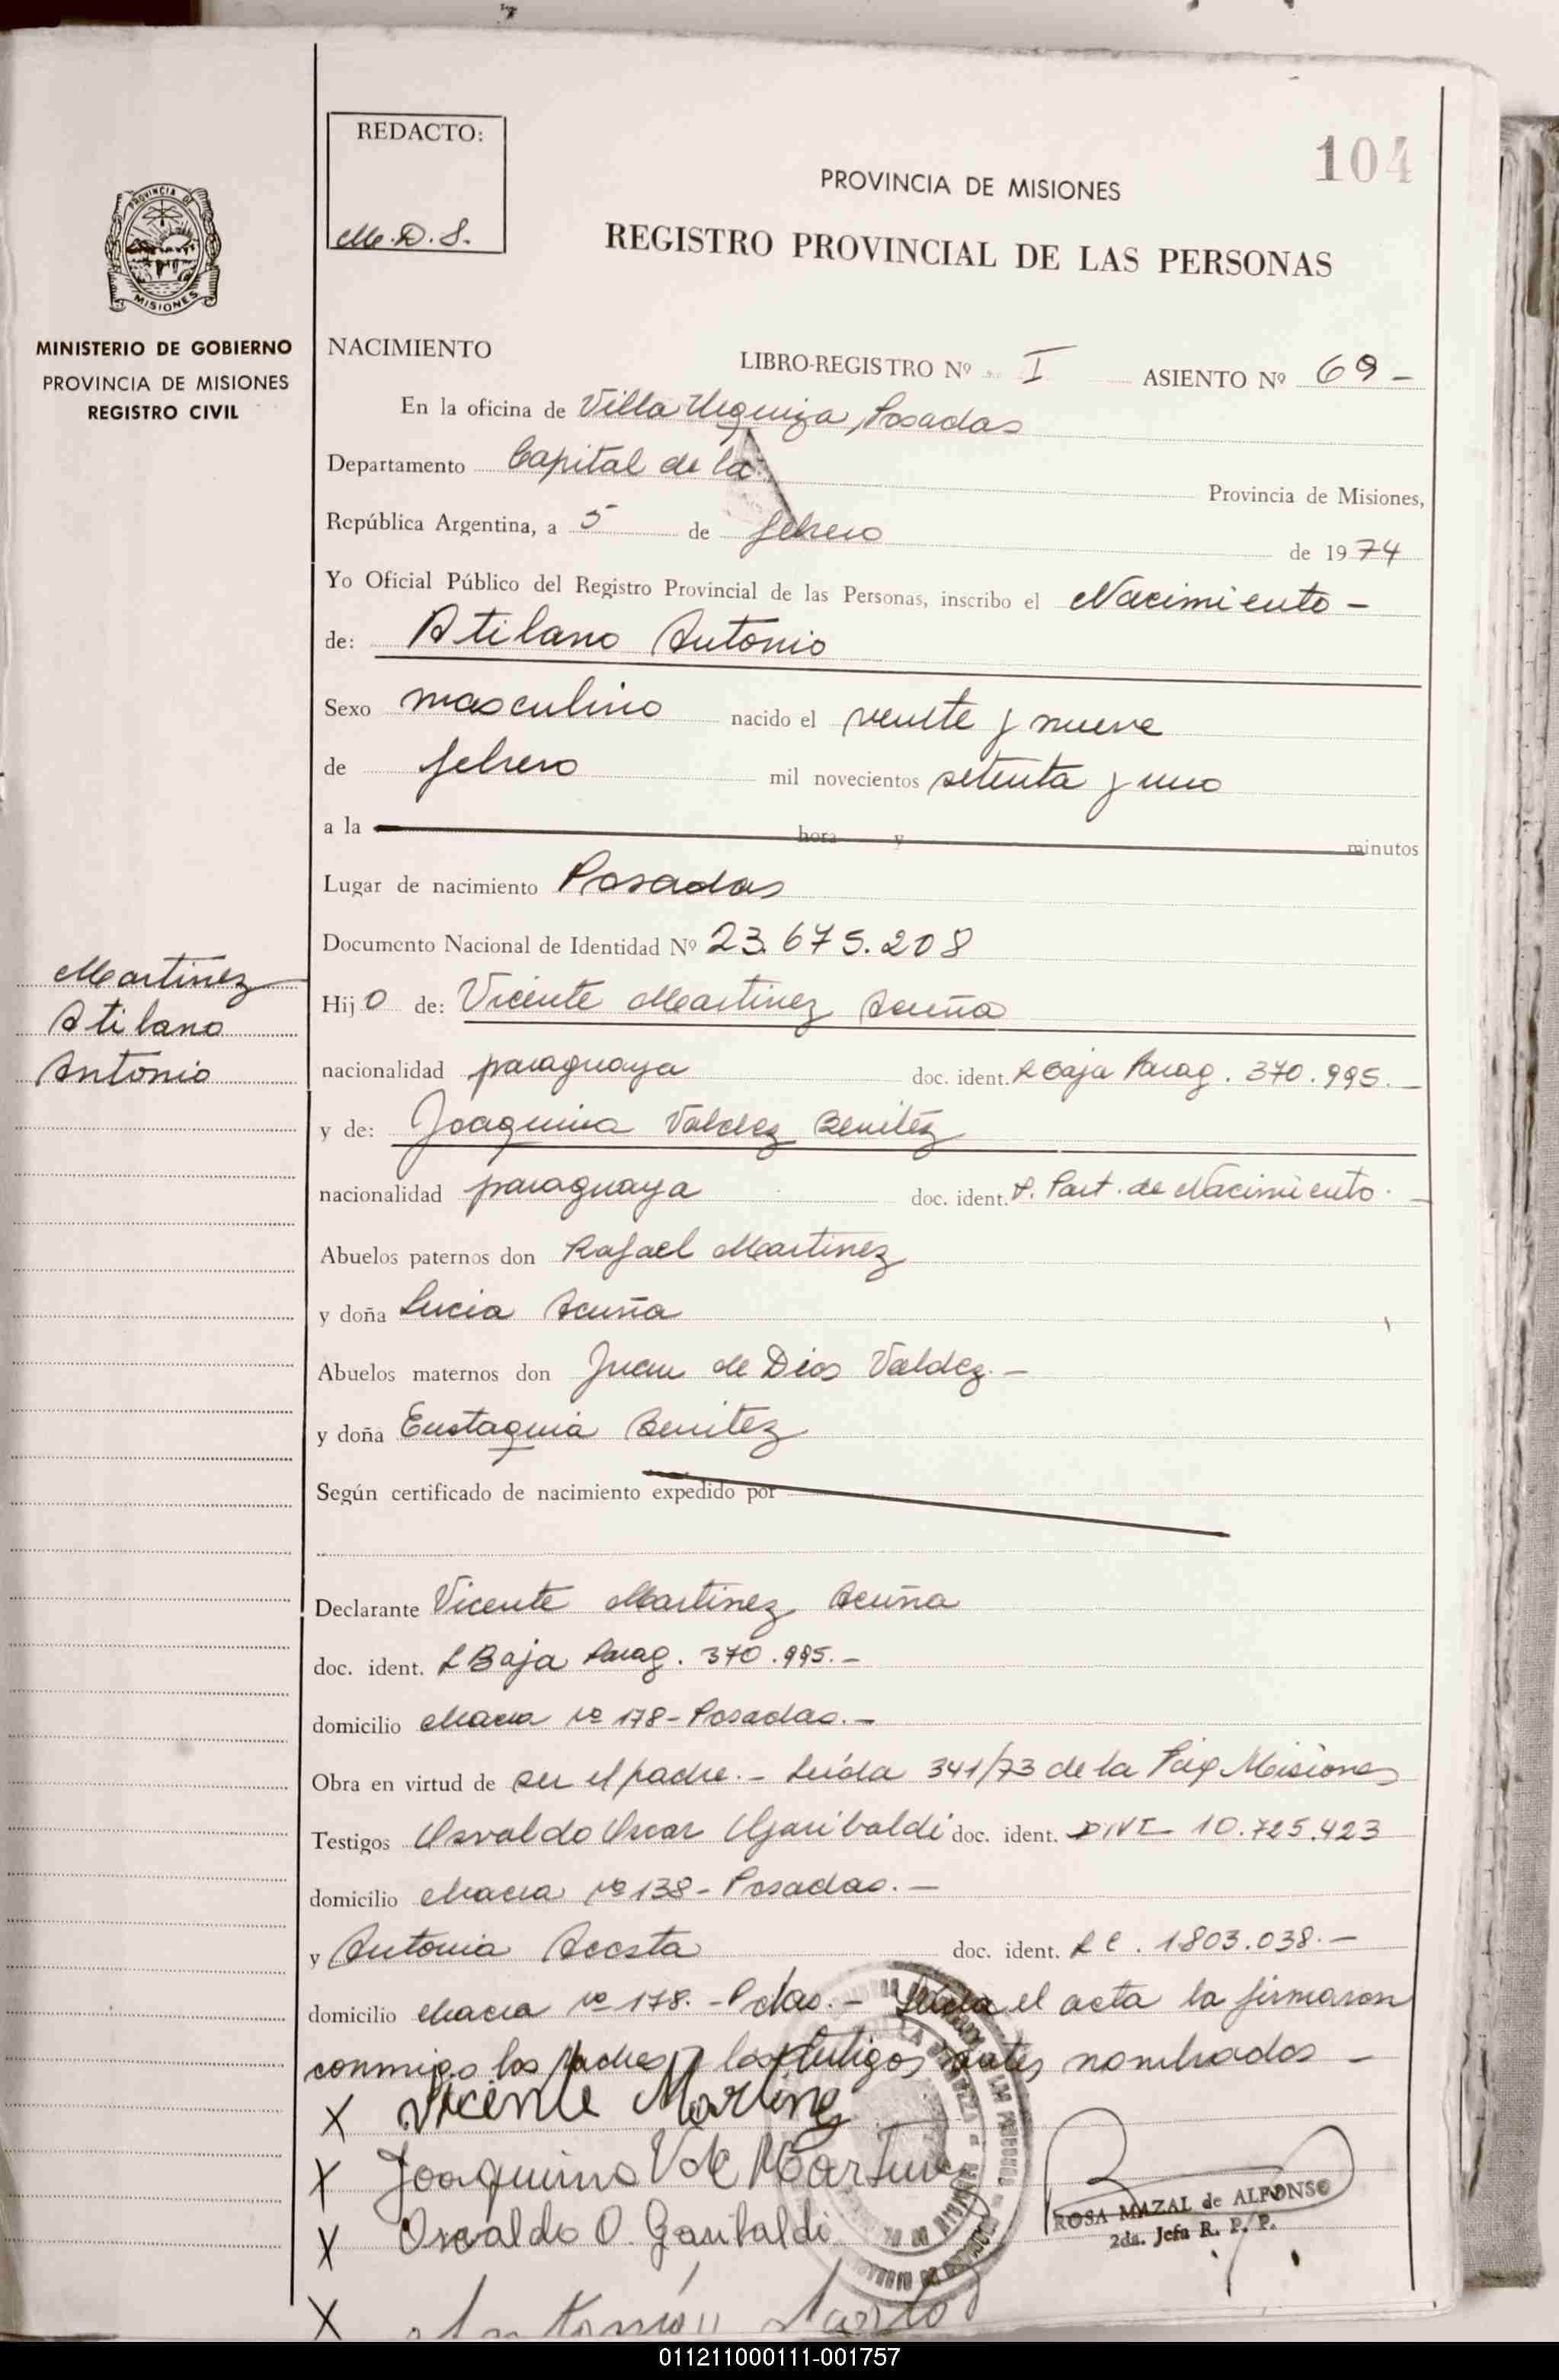 104
REDACTO:
M.D.S.
PROVINCIA DE MISIONES
REGISTRO PROVINCIAL DE LAS PERSONAS
PROVINCIA DE
MISIONES
MINISTERIO DE GOBIERNO
PROVINCIA DE MISIONES
REGISTRO CIVIL
NACIMIENTO
LIBRO-REGISTRO Nº I ASIENTO Nº 69 -
En la oficina de Villa Urquiza, Posadas
Departamento Capital de la Provincia de Misiones,
República Argentina, a 5 de febrero de 1974
Yo Oficial Público del Registro Provincial de las Personas, inscribo el Nacimiento -
de: Atilano Antonio
Sexo masculino nacido el veinte y nueve
de febrero mil novecientos setenta y uno
a la hora y minutos
Lugar de nacimiento Posadas
Documento Nacional de Identidad Nº 23.675.208
Martinez
Atilano
Antonio
Hijo de: Vicente Martinez Acuña
nacionalidad paraguaya doc. ident. L Baja Parag. 370.995.-
y de: Joaquina Valdez Benitez
nacionalidad paraguaya doc. ident. P. Part. de Nacimiento.-
Abuelos paternos don Rafael Martinez
y doña Lucia Acuña
Abuelos maternos don Juan de Dios Valdez.-
y doña Eustaquia Benitez
Según certificado de nacimiento expedido por
Declarante Vicente Martinez Acuña
doc. ident. L Baja Parag. 370.995.-
domicilio Chacra Nº 178- Posadas.-
Obra en virtud de ser el padre.- Leída 341/73 de la Misiones
Testigos Osvaldo Oscar Garibaldi doc. ident. DNI 10.725.423
domicilio Chacra Nº 138- Posadas.-
y Antonia Acosta doc. ident. L C. 1.803.038.-
domicilio Chacra Nº 178.- Pdas.- Leída el acta la firmaron
conmigo los padres y los testigos antes nombrados -
X Vicente Martinez
X Joaquina V de Martinez
X Osvaldo O. Garibaldi
ROSA MAZAL de ALFONSO
2da. Jefa R. P. P.
X
011211000111-001757